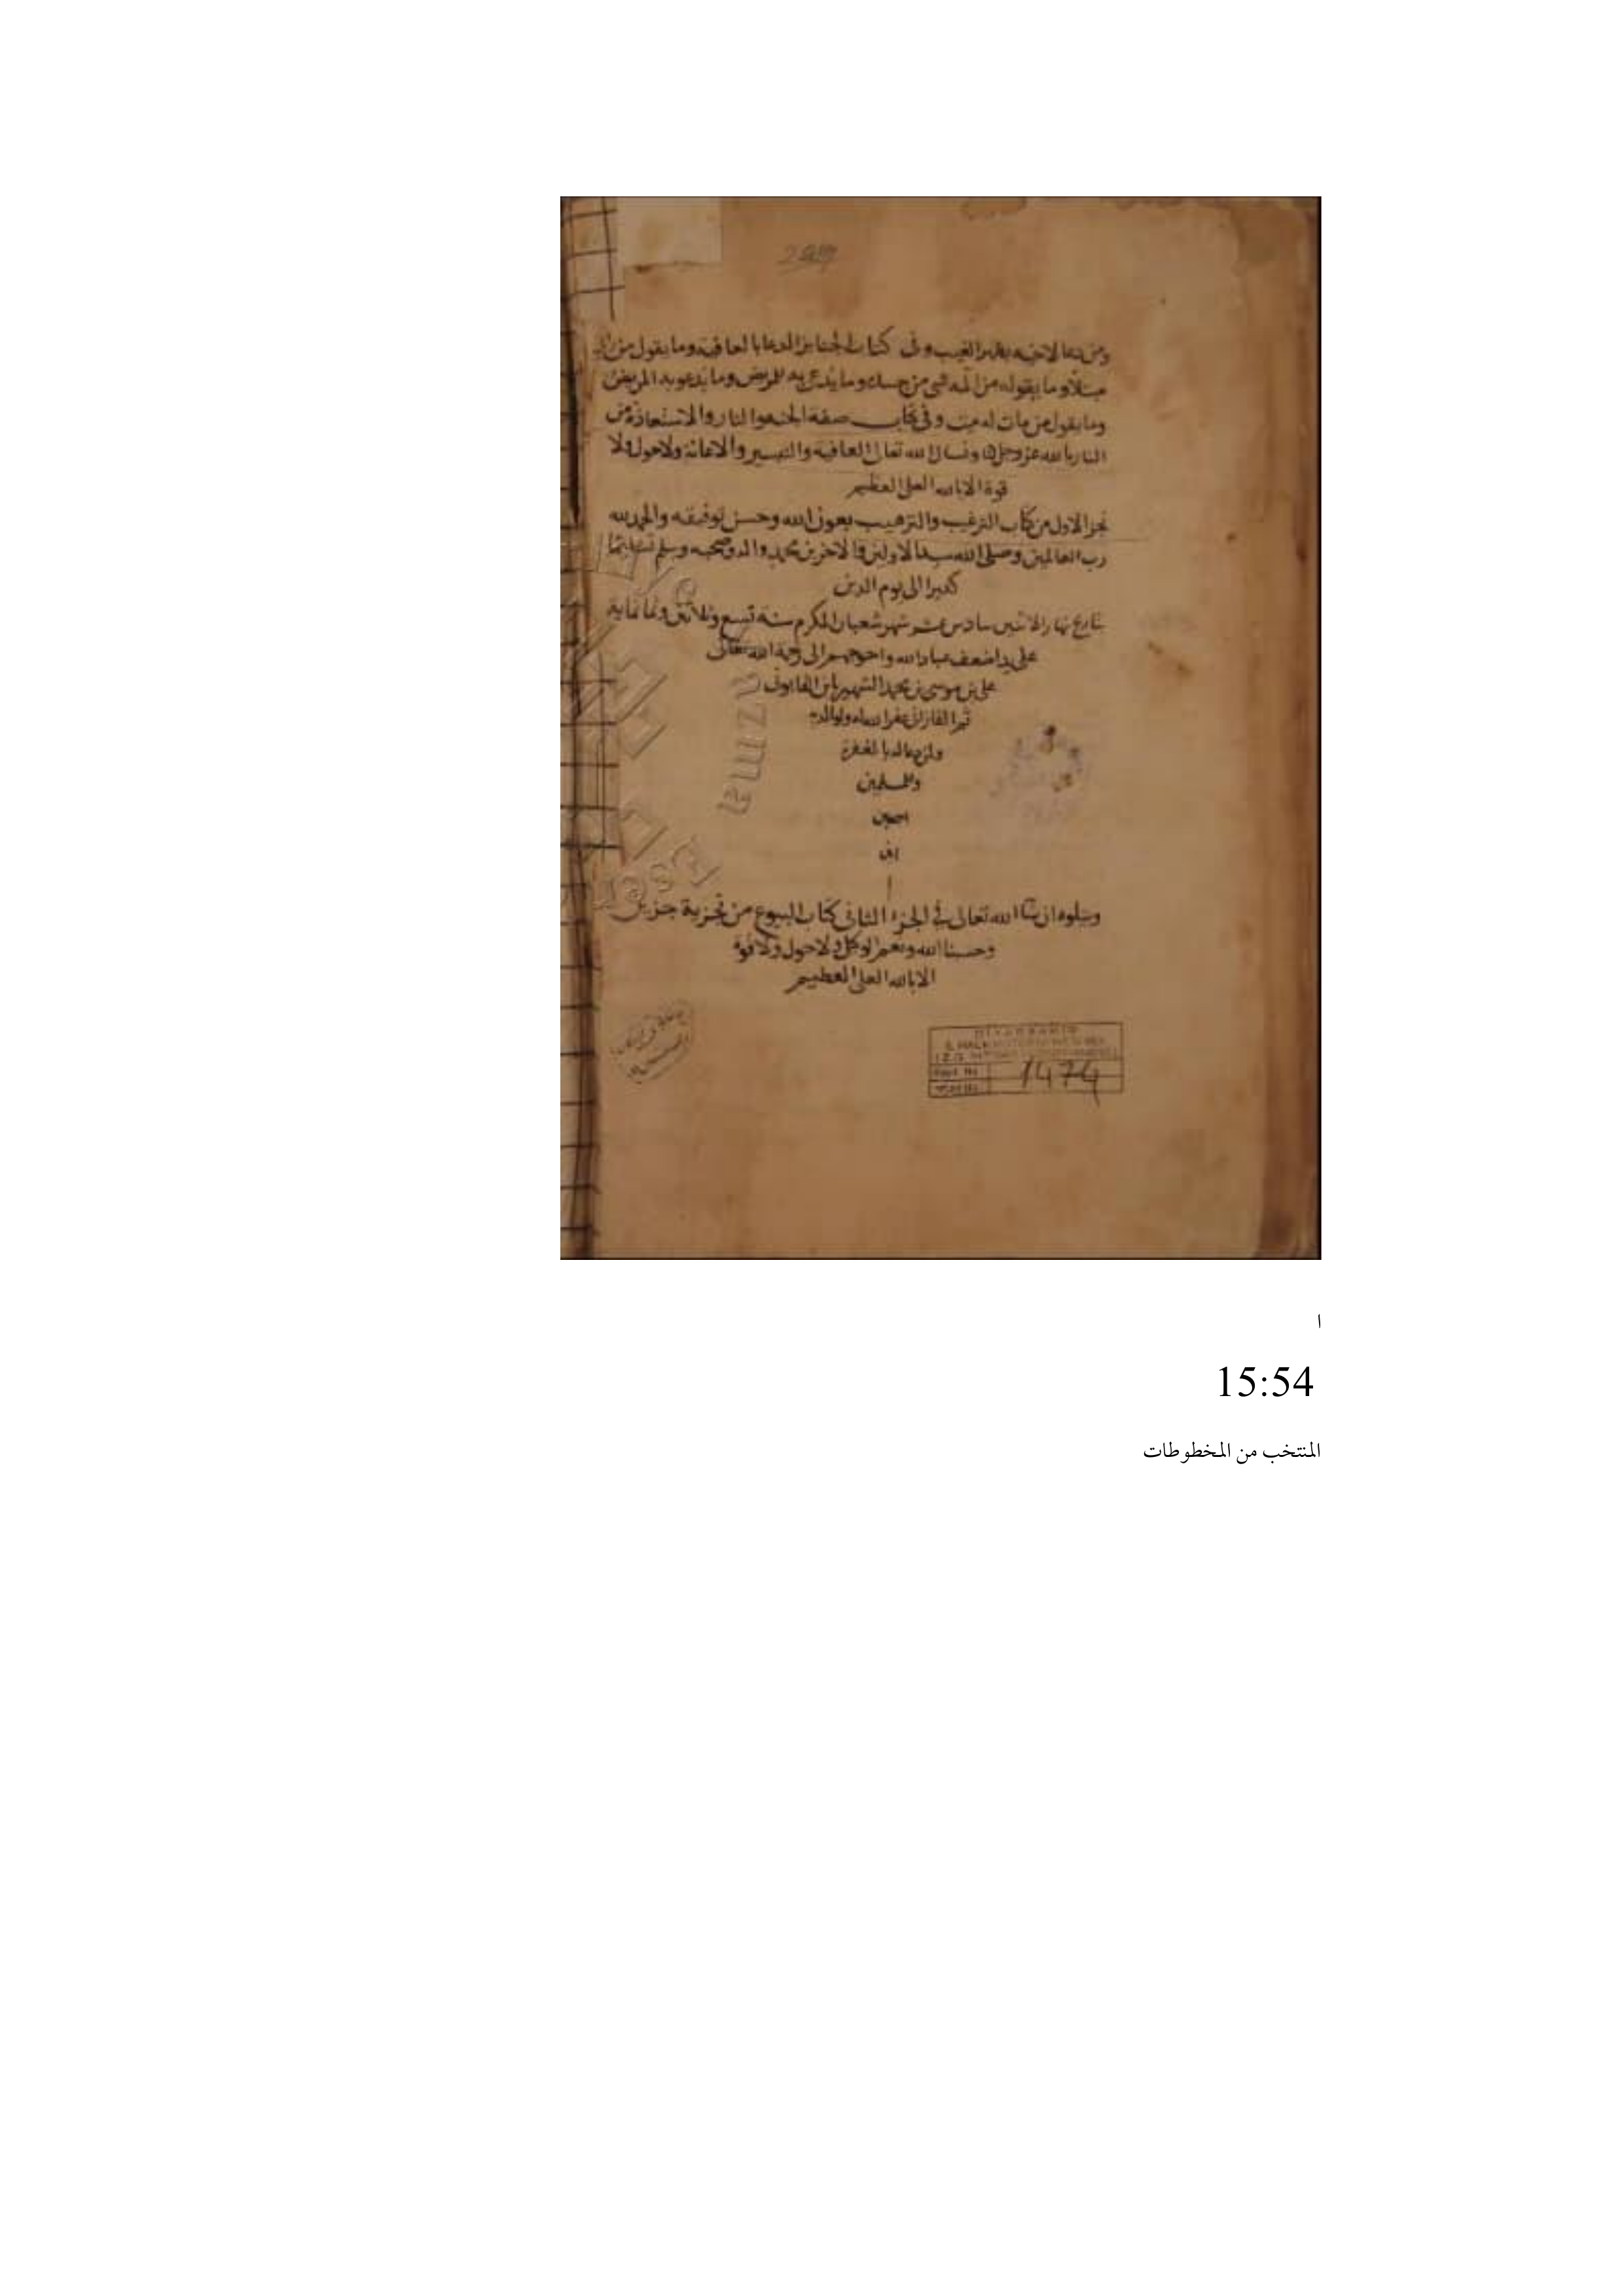 ومن دعا لاخيه بظهر الغيب وفي كتاب الجنايز الدعا بالعافية وما يقول من راى
مبتلا وما يقوله من آلمه شي من جسده وما يدعى به للمريض وما يدعو به المريض
وما يقول من مات له ميت وفي كتاب صفة الجنة والنار والاستعاذة من
النار بالله عز وجل ونسال الله تعالى العافية والتيسير والاعانة ولاحول ولا
قوة الا بالله العلي العظيم
نجز الاول من كتاب الترغيب والترهيب بعون الله وحسن توفيقه والحمد لله
رب العالمين وصلى الله سيد الاولين والاخرين محمد واله وصحبه وسلم تسليما
كثيرا الى يوم الدين
بتاريخ نهار الاثنين سادس عشر شهر شعبان المكرم سنة تسع وثلاثين وثمانماية
على يد اضعف عباد الله واحوجهم الى رحمة الله تعالى
علي بن موسى بن محمد الشهير بابن القابوني
غفر الله له ولوالديه
ولمن دعا له بالمغفرة
وللمسلمين
اجمعين
ويتلوه ان شا الله تعالى في الجزء الثاني كتاب البيوع من تجزية جزين
وحسبنا الله ونعم الوكيل ولا حول ولا قوة
الا بالله العلي العظيم
1474
ا
15:54
المنتخب من المخطوطات